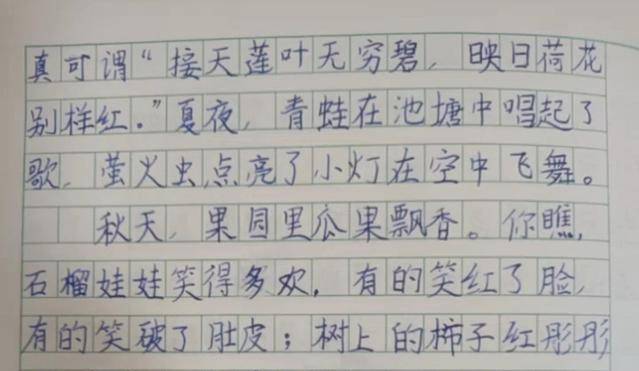 真可谓“接天莲叶无穷碧，映日荷花
别样红.”夏夜，青蛙在池塘中唱起了
歌，萤火虫点亮了小灯在空中飞舞。
秋天，果园里瓜果飘香。你瞧，
石榴娃娃笑得多欢，有的笑红了脸，
有的笑破了肚皮；树上的柿子红彤彤